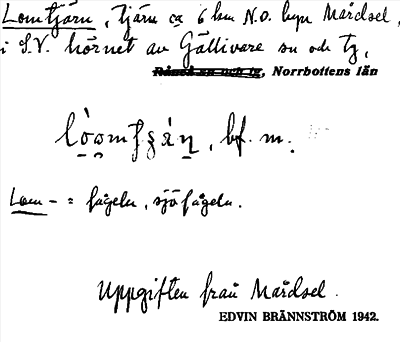 Lomtjärn, tjärn ca 6 km N.O. byn Mårdsel,
i S.V. hörnet av Gällivare sn och tg,
Råneå sn och tg, Norrbottens län
bf. m.
Lom- = fågeln, sjöfågeln.
Uppgiften från Mårdsel.
EDVIN BRÄNNSTRÖM 1942.